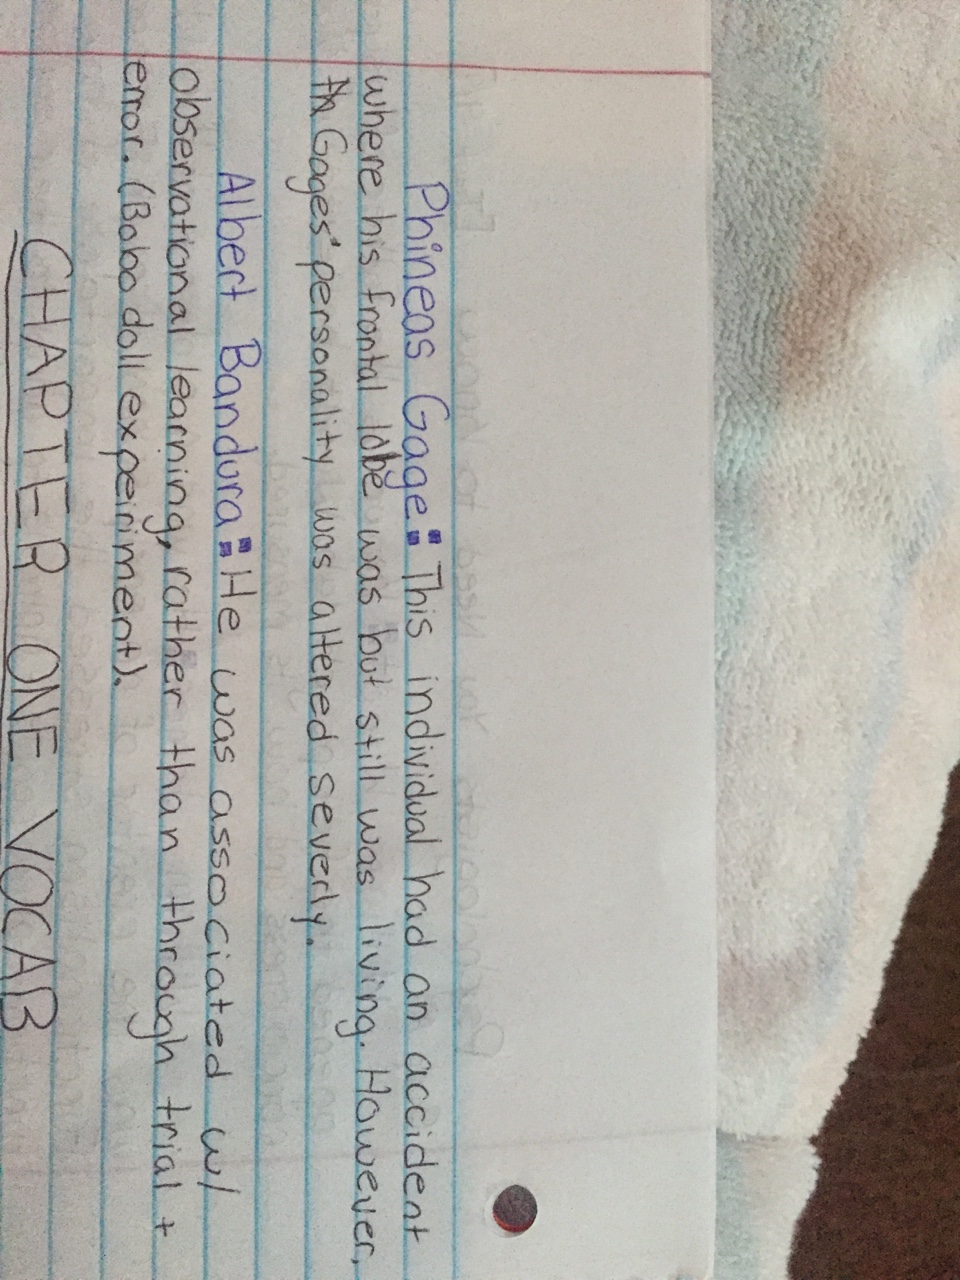 Phineas Gage: This individual had an accident
where his frontal lobe was but still was living. However,
Gages' personality was altered severly.
Albert Bandura: He was associated w/
observational learning, rather than through trial +
error. (Bobo doll expeiriment).
CHAPTER ONE VOCAB